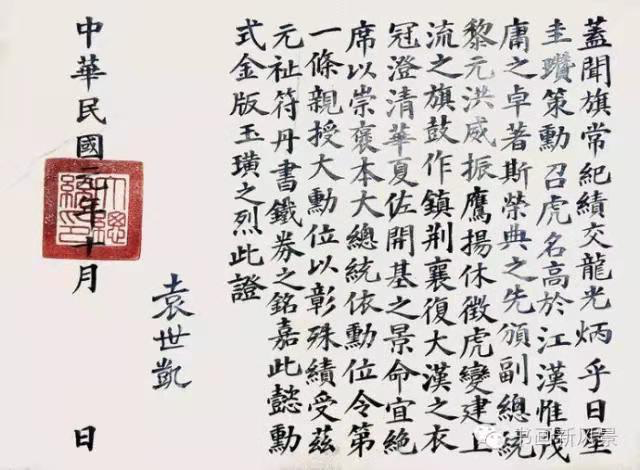 蓋聞旗常紀績交龍光炳乎日星
圭瓚策勳召虎名高於江漢惟茂
庸之卓著斯榮典之先頒副總統
黎元洪威振鷹揚休徵虎變建上
流之旗鼓作鎮荆襄復大漢之衣
冠澄清華夏佐開基之景命宜絶
席以崇褒本大總統依勳位令第
一條親授大勳位以彰殊績受兹
元祉符丹書鐵券之銘嘉此懿勳
式金版玉璜之烈此證
袁世凱
中華民國年十月 日
大總統印
书画新风景